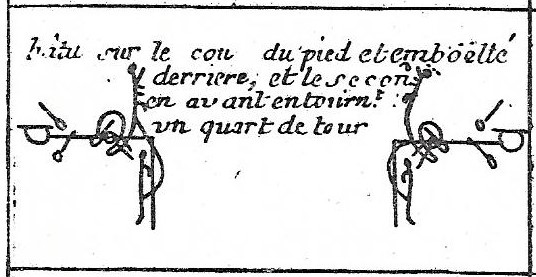 batu sur le cou du pied et emboëtté
derriere, et le secon
en avant en tourn.t
un quart de tour